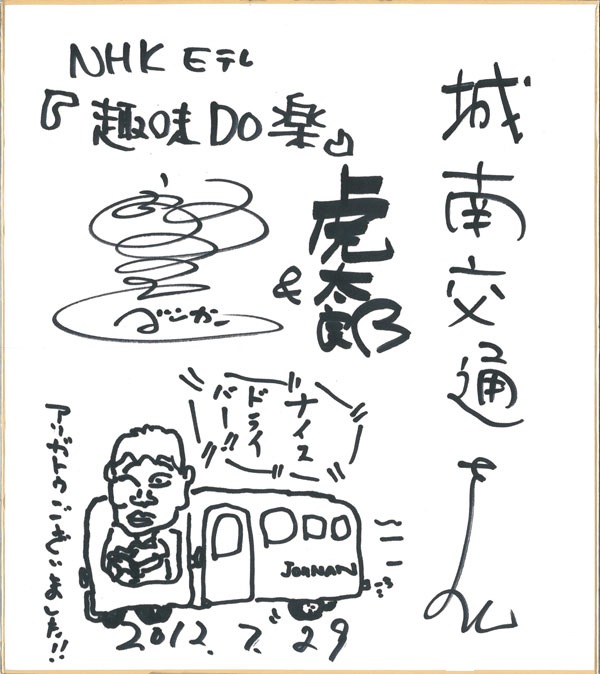 NHK Eテレ
『趣味DO楽』
城南交通さん
ゴンカン
&
虎太郎
ナイス
ドライ
バー!!
アリガトウございました!!
JONAN
2012.7.29